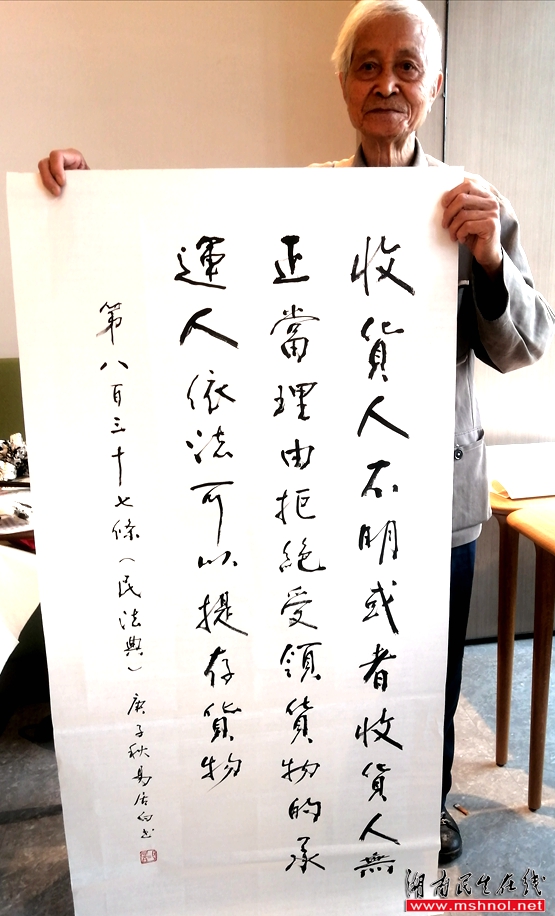 收貨人不明或者收貨人無
正當理由拒絕受領貨物的承
運人依法可以提存貨物
第八百三十七條（民法典）庚子秋易居白书
湖南民生在线
www.mshnol.net